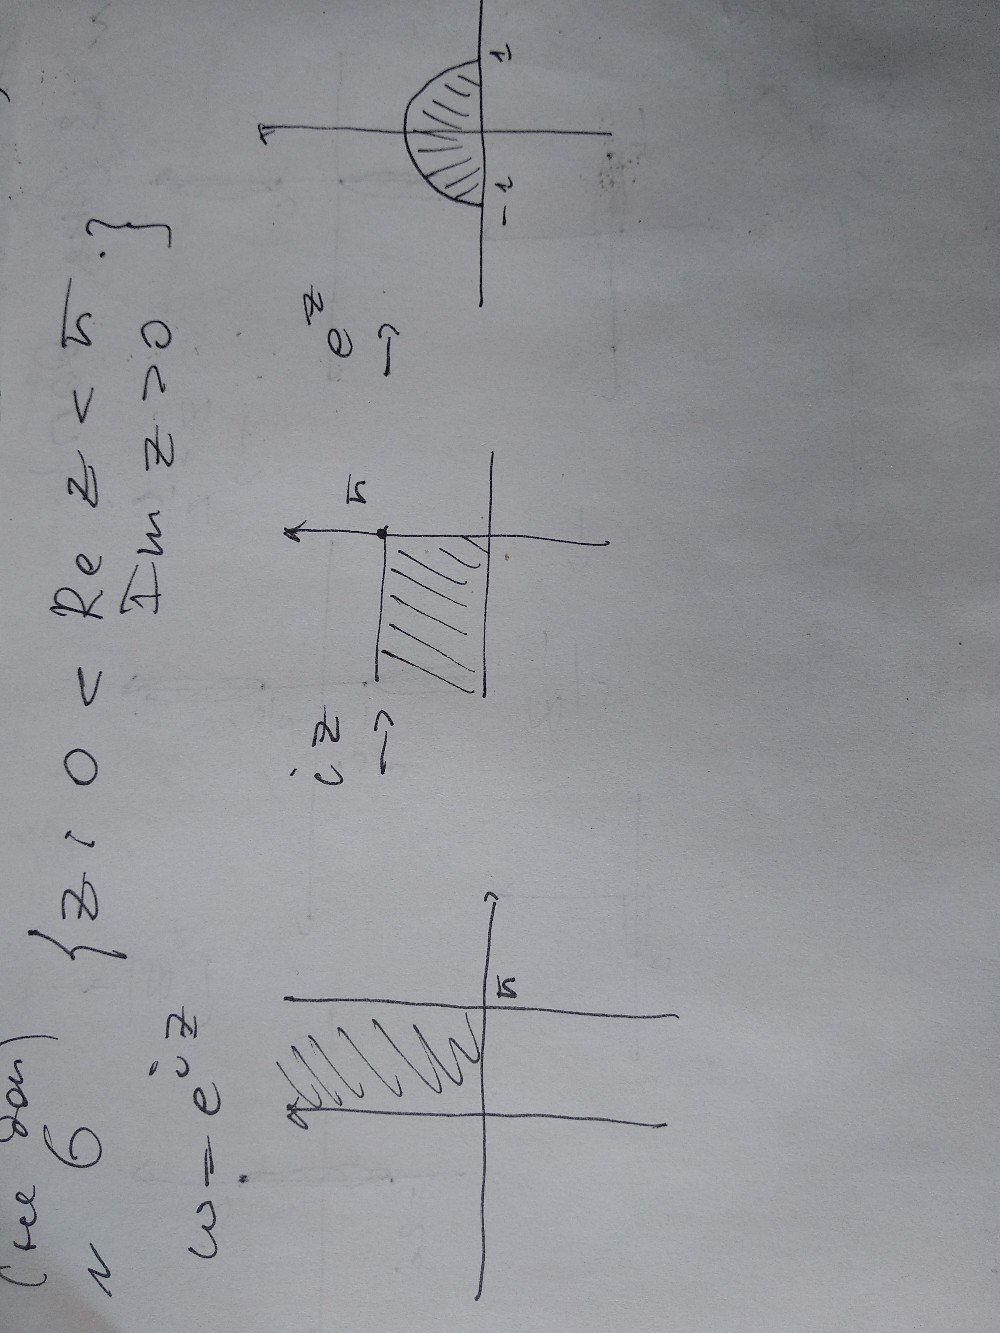 (не доп)
N 6 {z : 0 < Re z < π
Im z > 0}
ω = e^{iz}
iz
→
π
e^z
→
π
-1
1